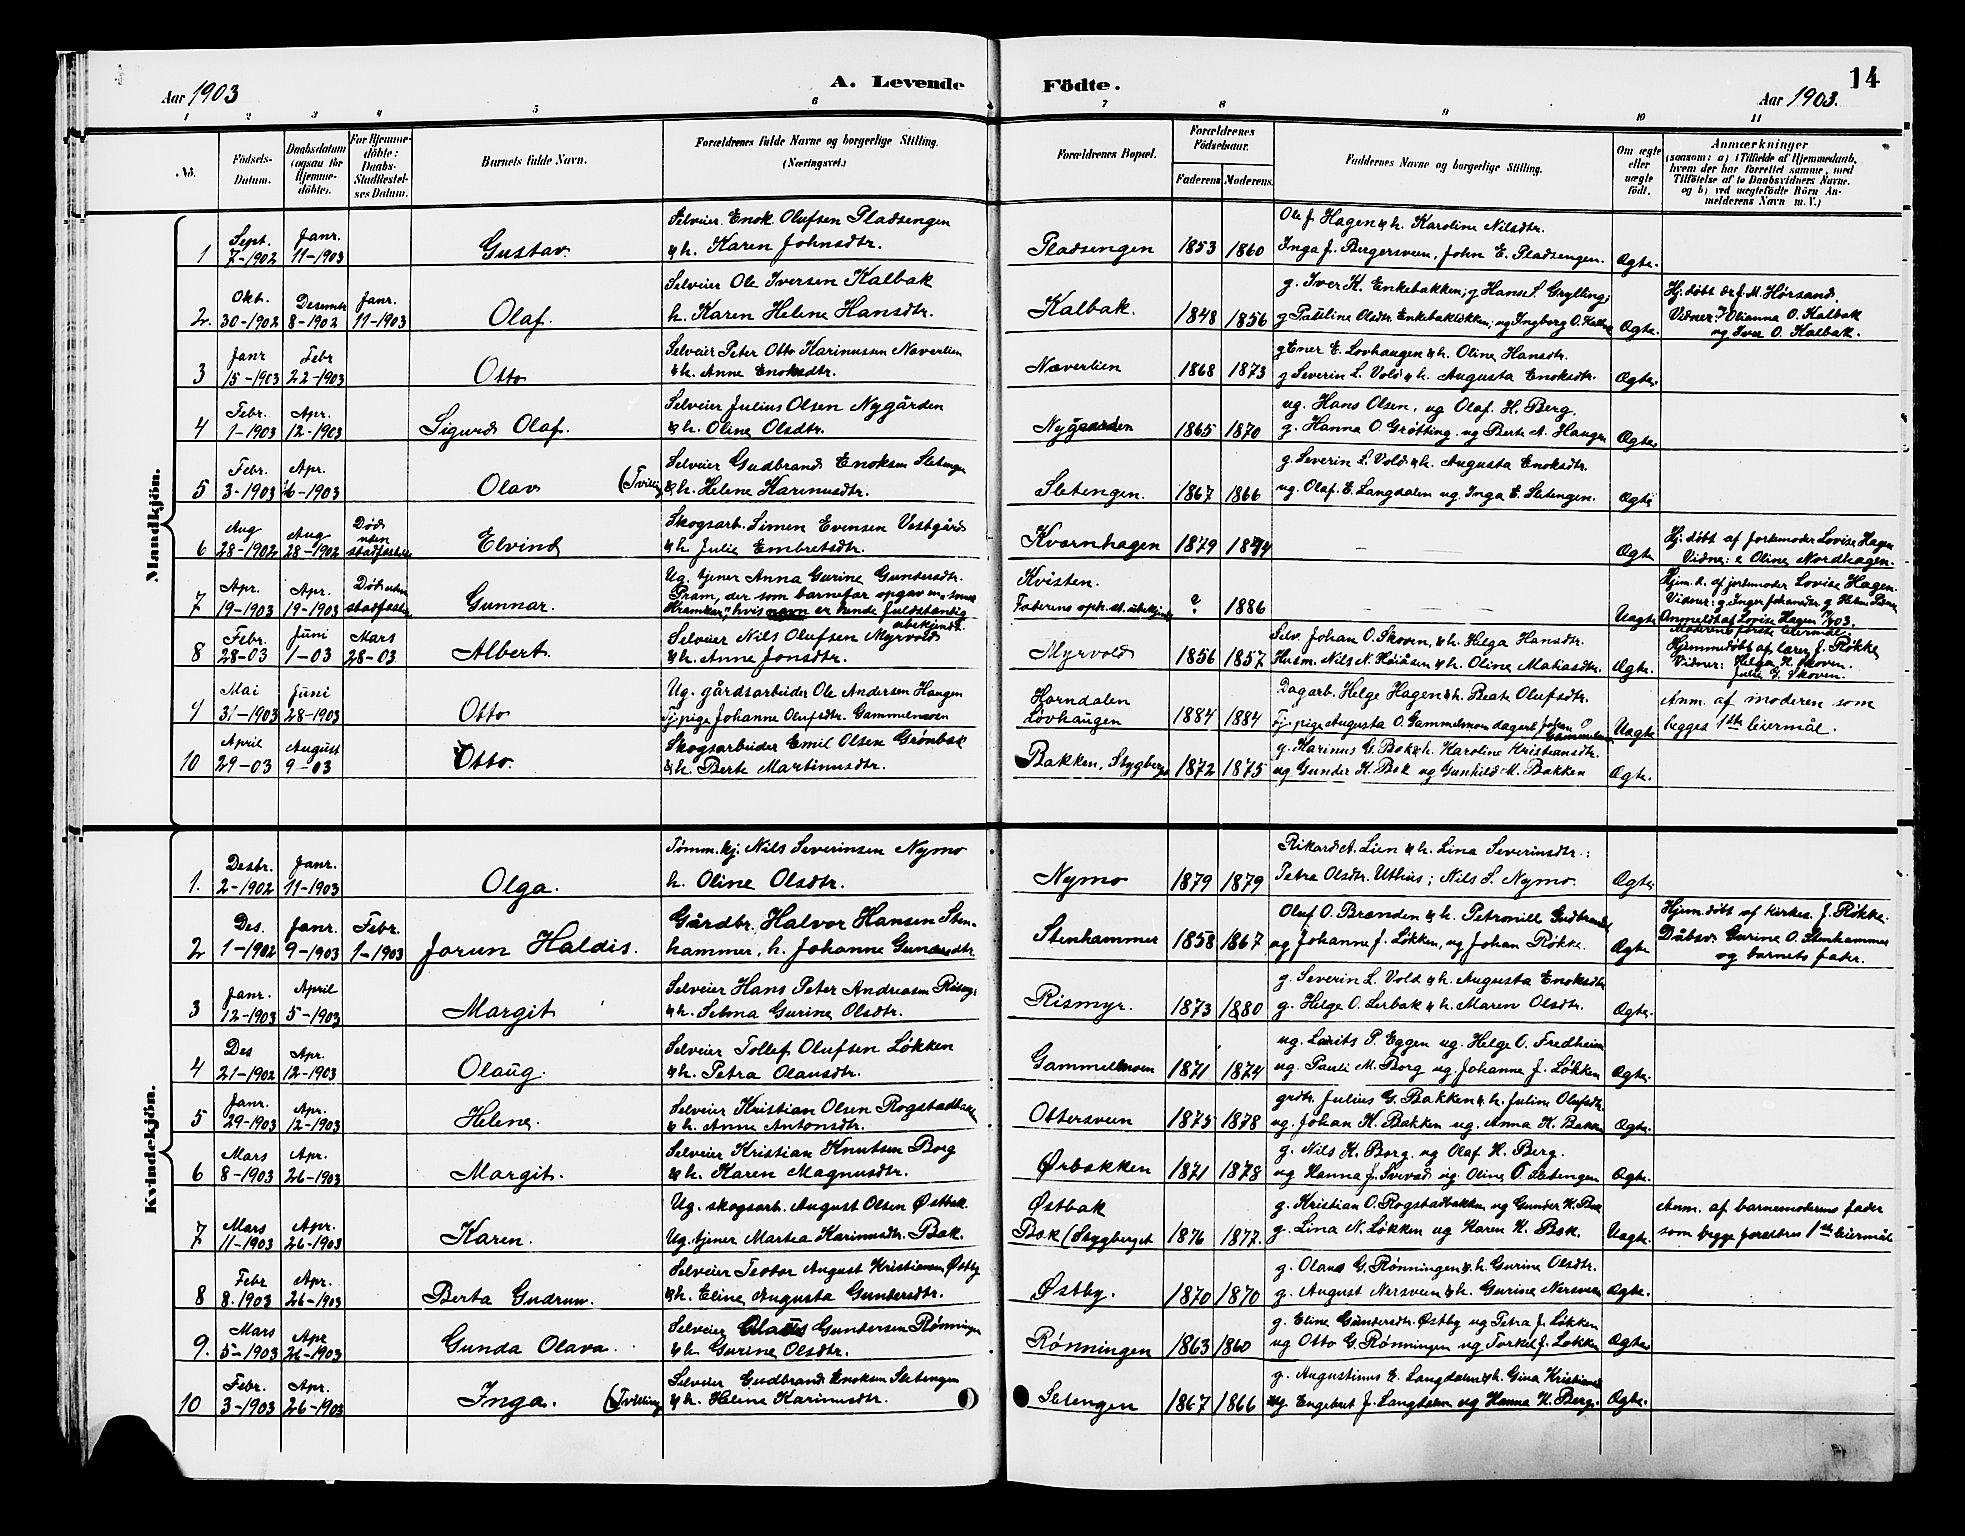 14
Aar 1903
A. Levende Födte.
Aar 1903.
1 2 3 4 5 6 7 8 9 10 11
No.
Födsels-Datum.
Daabsdatum (ogsaa for Hjemme-döbte).
For Hjemme-döbte: Daabs-Stadfæstel-ses Datum.
Barnets fulde Navn.
Forældrenes fulde Navne og borgerlige Stilling. (Næringsvei.)
Forældrenes Bopæl.
Forældrenes Födselsaar.
Faderens Moderens
Faddernes Navne og borgerlige Stilling.
Om ægte eller uægte födt.
Anmærkninger (saasom: a) i Tilfælde af Hjemmedaab, hvem der har forrettet samme, med Tilföielse af to Daabsvidners Navne. og b) ved uægtefödte Börn An-melderens Navn m. V.)
Mandkjön.
1 Sept. 7-1902 Janr. 11-1903 Gustav. Selveier Enok Olufsen Pladsengen & h. Karen Johnsdtr. Pladsengen 1853 1860 Ole J. Hagen & h. Karoline Nilsdtr. Inga J. Bergersveen, John E. Pladsengen. Ægte.
2. Okt. 30-1902 Desember 8-1902 Janr. 11-1903 Olaf. Selveier Ole Iversen Kalbak h. Karen Helene Hansdtr. Kalbak. 1848 1856 g. Iver K. Enkebakken; g Hans S. Grylling; g Pauline Olsdtr. Enkebakløkken; ug Ingborg O. Kalbak Ægte. Hj. døbt af J. M. Hörsand. Vidner: Olianna O. Kalbak og Iver O. Kalbak.
3 Janr 15-1903 Febr 22-1903 Otto Selveier Peter Otto Karinussen Næverlien & h. Anne Enoksdtr. Næverlien 1868 1873 g Ener E. Lovhaugen & h. Oline Hansdtr. g Severin L. Vold & h. Augusta Enoksdtr. Ægte.
4 Febr. 1-1903 Apr. 12-1903 Sigurd Olaf. Selveier Julius Olsen Nygården & h. Oline Olsdtr. Nygaarden 1865 1870 ug. Hans Olsen, ug Olaf. H. Berg. g. Hanna O. Grøtting, ug Berte A. Haugen Ægte
5 Febr. 3-1903 Apr. 26-1903 Olav (Tvilling Selveier Gudbrand Enoksen Sletengen & h. Helene Karinusdtr. Sletengen. 1867 1866 g. Severin L. Vold & h. Augusta Enoksdtr. ug. Olaf. E. Langdalen ug Inga E. Sletengen. Ægte
6 Aug 28-1902 Aug 28-1902 Död uden stadfæstelse Elvind Skogsarb. Simen Evensen Vestgård & h. Julie Embretsdtr. Kvernhagen 1879 1874 Ægte Hj. döbt af jordemoder Lovise Hagen Vidne: Oline Nordhagen.
7 Apr. 19-1903 Apr. 19-1903 Död uden stadfæstelse Gunnar. Ug. tjener Anna Gurine Gundersdtr. Pram, der som barnefar opgav en hvis navn er hende fuldstændig ubekjendt. Kvisten. Faderens oph. st. ubekjendt ? 1886 Uægte Hjem. d. af jordemoder Lovise Hagen. Anmeldt af Lovise Hagen Moderens første leiermål.
8 Febr. 28-03 Juni 1-03 Mars 28-03 Albert. Selveier Nils Olufsen Myrvold & h. Anne Jonsdtr. Myrvold 1856 1857 Selv. Johan O. Skoven, & h. Helga Hansdtr. Husm. Nils N. Höiåsen & h. Oline Matiasdtr. Ægte. Hjemmedöbt af lærer J. Røkke Vidner: Helga H. Skoven. Julie G. Skoven.
9 Mai 31-1903 Juni 28-1903 Otto Ug. gårdsarbeider Ole Andersen Haugen Tj. pige Johanne Olufsdtr. Gammelmoen Horndalen Løvhaugen 1884 1884 Dagarb. Helge Hagen & h. Beate Olufsdtr. Tj. pige Augusta O. Gammelmoen dagarb. Johan O Gammelmoen Uægte Anm. af moderen som begges 1ste leiermål.
10 April 29-03 August 9-03 Otto. Skogsarbeider Emil Olsen Grönbak & h. Berte Martinusdtr. Bakken, Stygberget 1872 1875 g. Karinus G. Bak & h. Karoline Kristiansdtr. ug Gunder K. Bak ug Gunhild M. Bakken Ægte.
Kvindekjön.
1. Desbr. 2-1902 Janr. 11-1903 Olga. Tömm.kj. Nils Severinsen Nymo h. Oline Olsdtr. Nymo 1879 1879 Rikard A. Lien & h. Lina Severinsdtr.; Petra Olsdtr. Uthus; Nils S. Nymo. Ægte
2 Des. 1-1902 Janr. 9-1903 Febr. 1-1903 Jorun Haldis. Gårdbr. Halvor Hansen Sten-hammer, h. Johanne Gunersdtr. Stenhammer 1858 1867 Oluf O. Brænden & h. Petronille Gudbrandsd ug Johanne J. Løkken, ug Johan Røkke. Ægte Hjem.døbt af kirkes. J. Røkke. Dåbsv. Gurine O. Stenhammer og barnets fader.
3 Janr. 12-1903 April 5-1903 Margit Selveier Hans Peter Andreasen Rismyr & h. Selma Gurine Olsdtr. Rismyr. 1873 1880 g. Severin L. Vold & h. Augusta Enoksdtr g. Helge O. Lerbak & h. Maren Olsdtr. Ægte.
4 Des 21-1902 Apr. 12-1903 Olaug. Selveier Tollef Olufsen Løkken & h. Petra Olausdtr. Gammelmoen 1871 1874 ug. Laurits P. Eggen ug. Helge O. Fredheim ug. Pauli M. Borg ug. Johanne J. Løkken Ægte.
5 Janr. 29-1903 Apr. 12-1903 Helene. Selveier Kristian Olsen Rogstadbakken & h. Anne Antonsdtr. Ottersveen 1875 1878 grdbr. Julius G. Bakken & h. Juline Olufsdtr. ug. Johan K. Bakken ug. Anna K. Bakken Ægte.
6 Mars 8-1903 Apr. 26-1903 Margit. Selveier Kristian Knutsen Borg & h. Karen Magnusdtr. Ørbakken 1871 1878 g. Nils K. Borg, ug Olaf H. Berg. ug Hanna J. ug. Oline O. Sletengen Ægte.
7 Mars 11-1903 Apr. 26-1903 Karen. Ug. skogsarb. August Olsen Østbak. Ug. tjener Martea Karinusdtr. Bak. Østbak Bak (Stygberget 1876 1877. g. Kristian O. Rogstadbakken ug Gunder K. Bak g. Lina N. Løkken ug Karen K. Bak. Uægte. Anm. af barnemoderens fader som begge forældres 1ste leiermål
8 Febr 8.1903 Apr. 26-1903 Berta Gudrun. Selveier Teodor August Kristiansen Østby & h. Eline Augusta Gundersdtr. Østby. 1870 1870 g. Olaus G. Rønningen & h. Gurine Olsdtr. g. August Nersveen & h. Gurine Nersveen Ægte.
9. Mars 5-1903 Apr 26-1903 Gunda Olava. Selveier Olaus Gundersen Rønningen & h. Gurine Olsdtr. Rønningen 1863 1860 g. Eline Gundersdtr Østby ug Petra J. Løkken ug Otto G. Rønningen ug Torkel J. Løkken Ægte
10 Febr. 3-1903 Apr. 26-1903 Inga. (Tvilling Selveier Gudbrand Enoksen Sletengen & h. Helene Karinusdtr. Sletengen 1867 1866 g. Augustinus E. Langdalen & h. Gina Kristiansd ug. Engebret J. Langdalen ug Hanna H. Berg. Ægte.